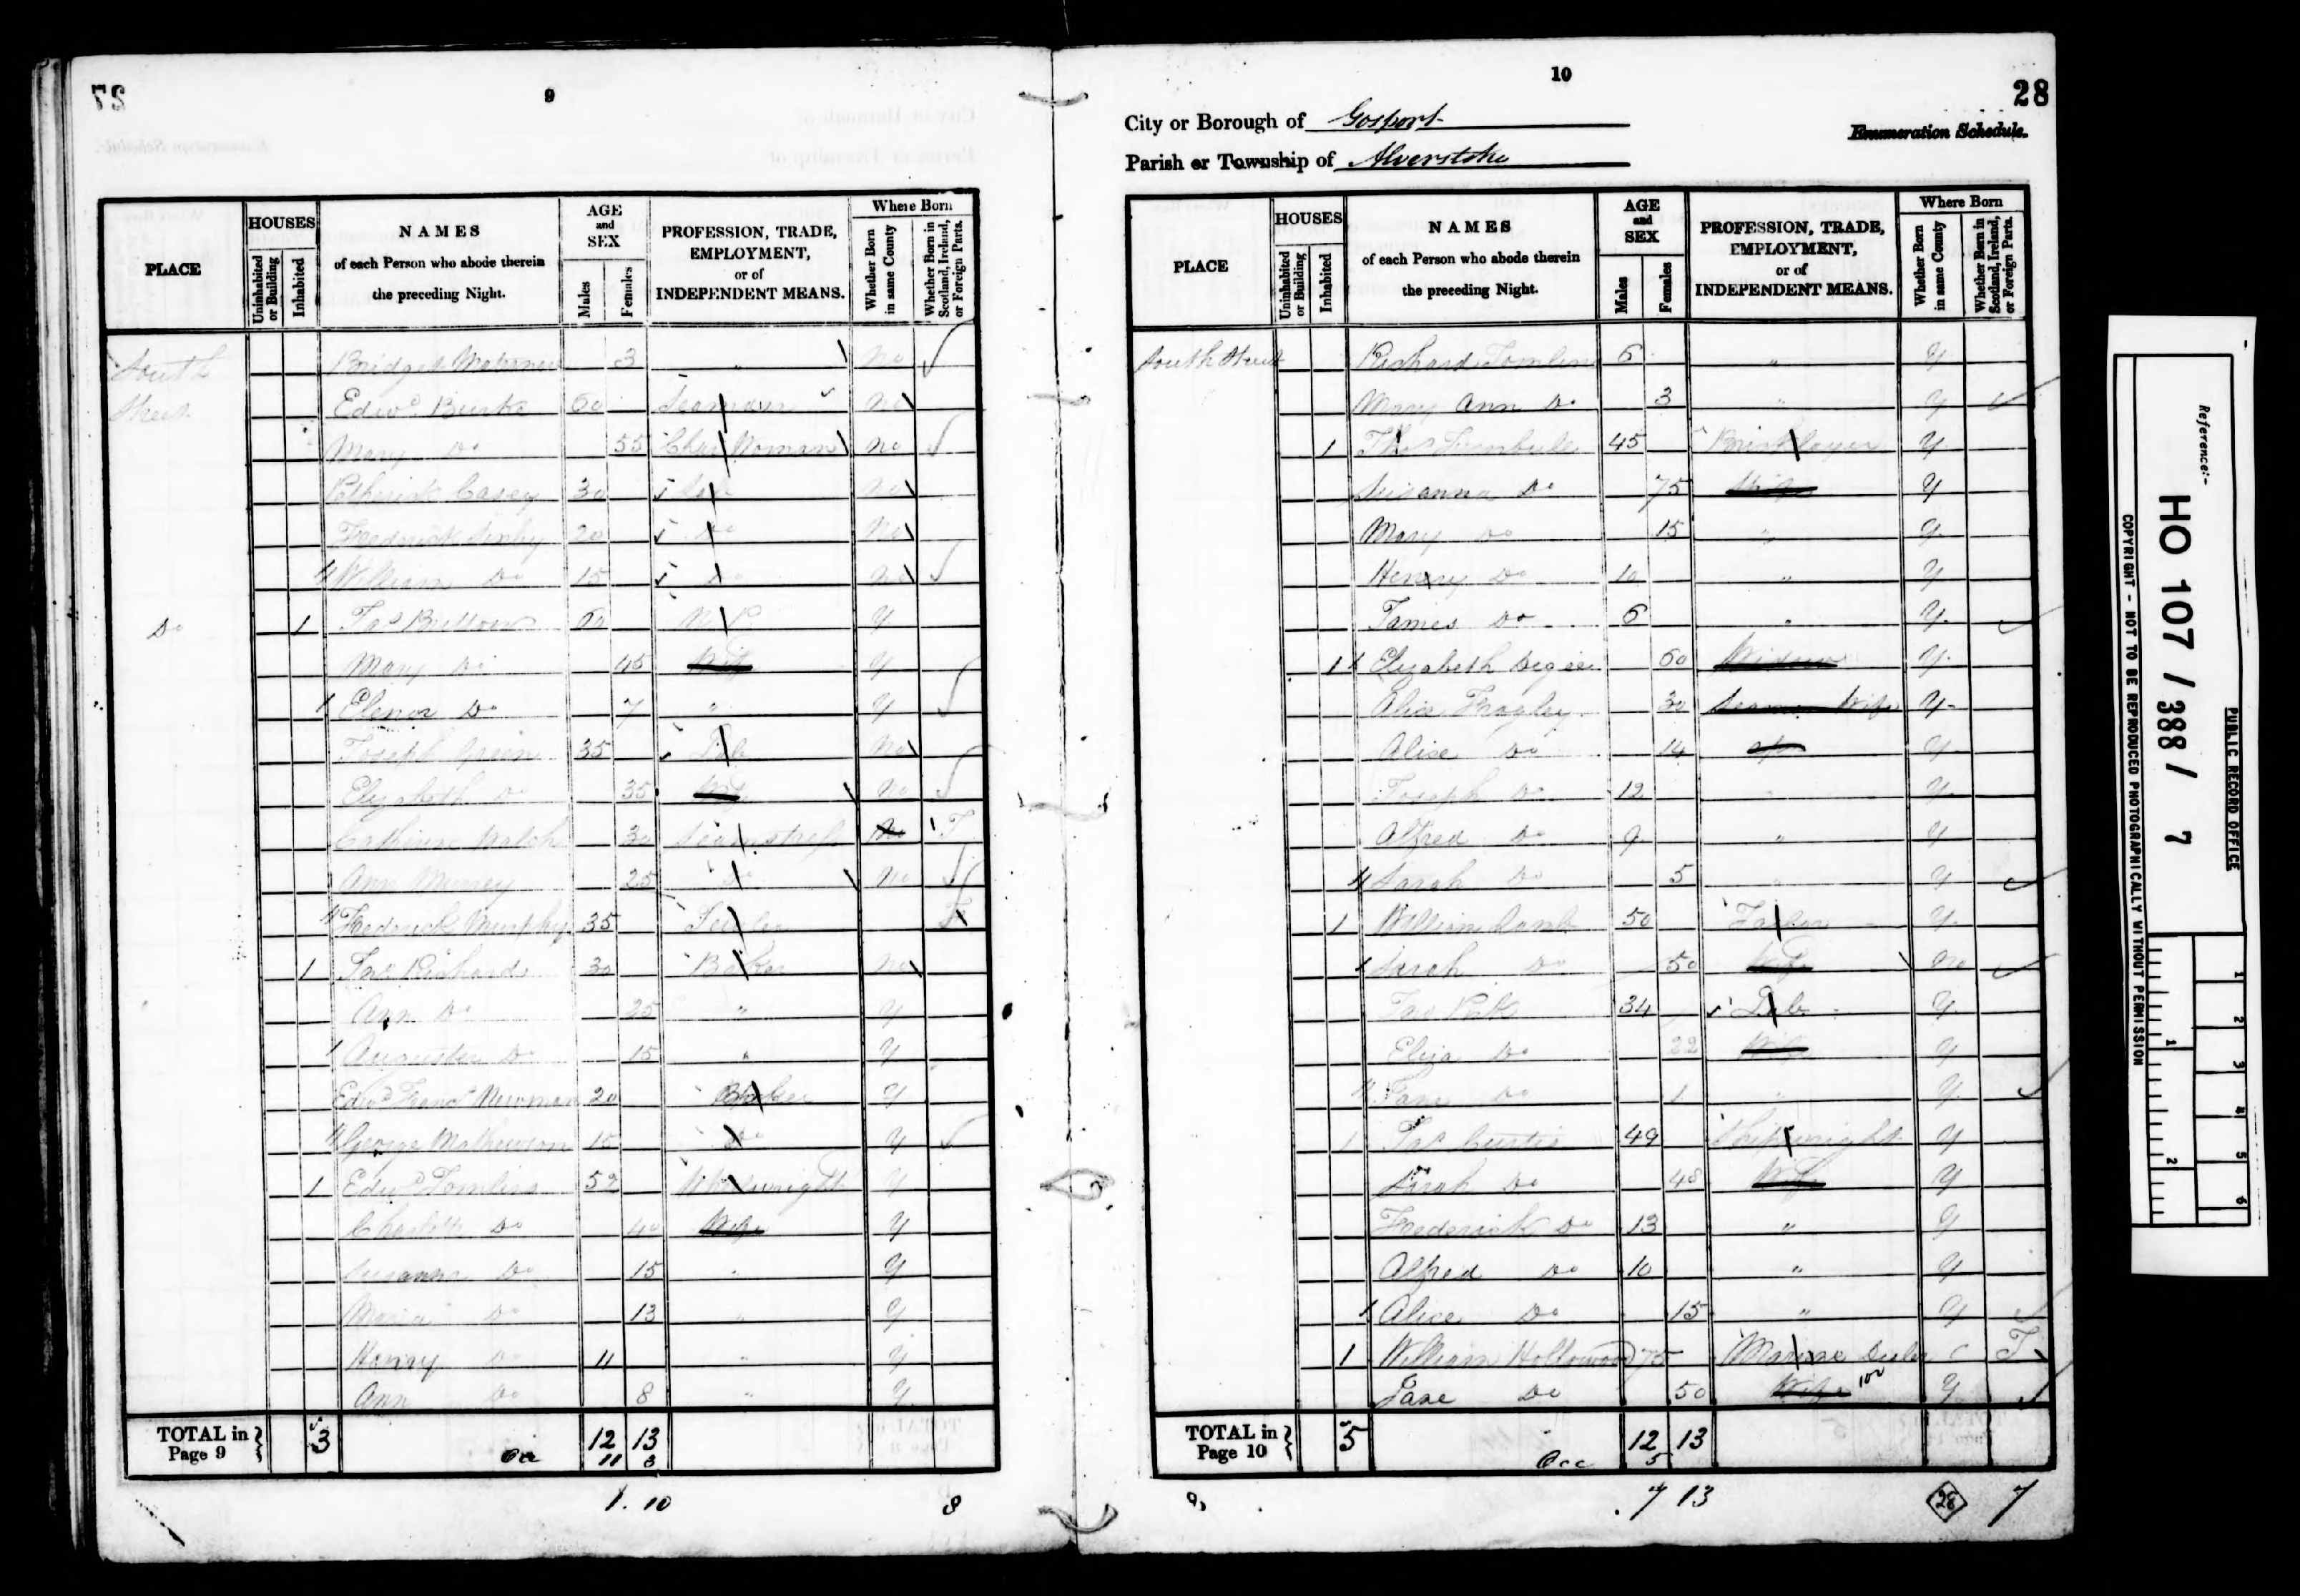 9
HOUSES
AGE and SEX
Where Born
PLACE
Uninhabited or Building
Inhabited
NAMES of each Person who abode therein the preceding Night.
Males
Females
PROFESSION, TRADE, EMPLOYMENT, or of INDEPENDENT MEANS.
Whether Born in same County
Whether Born in Scotland, Ireland, or Foreign Parts.
South Street Bridget 3 " No
Edwd. Burke 60 Seaman No
Mary Do 55 Char Woman No
Casey 30 No
Frederick 20 Do No
William Do 15 Do No
Do 1 Jas 60 Y
Mary Do 45 Wife Y
Elenor Do 7 " Y
Joseph Green 35 Lab No
Elizabeth Do 35 Wife No
Catherine Walch 30 Seamstress No
Ann Murrey 25 Do No
Frederick Murphy 35
1 Jas Richards 30 Baker No
Ann Do 25 " Y
Augusta Do 15 " Y
Edwd Newman 20 Y
George Mathewson 15 Do Y
1 Edwd Tomlins 52 Wheelwright Y
Charlotte Do 40 Wife Y
Susanna Do 15 " Y
Maria Do 13 " Y
Henry Do 11 " Y
Ann Do 8 " Y
TOTAL in Page 9 3 12 13
Occ 11 3
1. 10
8
10
28
City or Borough of Gosport
Parish or Township of Alverstoke
Enumeration Schedule.
HOUSES
AGE and SEX
Where Born
PLACE
Uninhabited or Building
Inhabited
NAMES of each Person who abode therein the preceding Night.
Males
Females
PROFESSION, TRADE, EMPLOYMENT, or of INDEPENDENT MEANS.
Whether Born in same County
Whether Born in Scotland, Ireland, or Foreign Parts.
South Street Richard Tomlins 6 " Y
Mary Ann Do 3 " Y
1 Thos Turnbull 45 Bricklayer Y
Susanna Do 75 Wife Y
Mary Do 15 " Y
Henry Do 10 " Y
James Do 6 " Y
1 Elizabeth 60 Widow Y
Alice Fragley 30 Seamans Wife Y
Alice Do 14 Y
Joseph Do 12 " Y
Alfred Do 9 " Y
Sarah Do 5 " Y
1 William Lamb 50 Y
Sarah Do 50 Wife No
Jas 34 Lab Y
Eliza Do 22 Wife Y
Jane Do 1 " Y
1 Jas Curtis 49 Shipwright Y
Sarah Do 48 Wife Y
Frederick Do 13 " Y
Alfred Do 10 " Y
Alice Do 15 " Y
1 William Hollowood 75 Marine
Jane Do 50 Wife Y
TOTAL in Page 10 5 12 13
Occ 5
7 13
28
7
Reference:-
HO 107 / 388 / 7
PUBLIC RECORD OFFICE
COPYRIGHT - NOT TO BE REPRODUCED PHOTOGRAPHICALLY WITHOUT PERMISSION
1 2 3 4 5 6
1 2